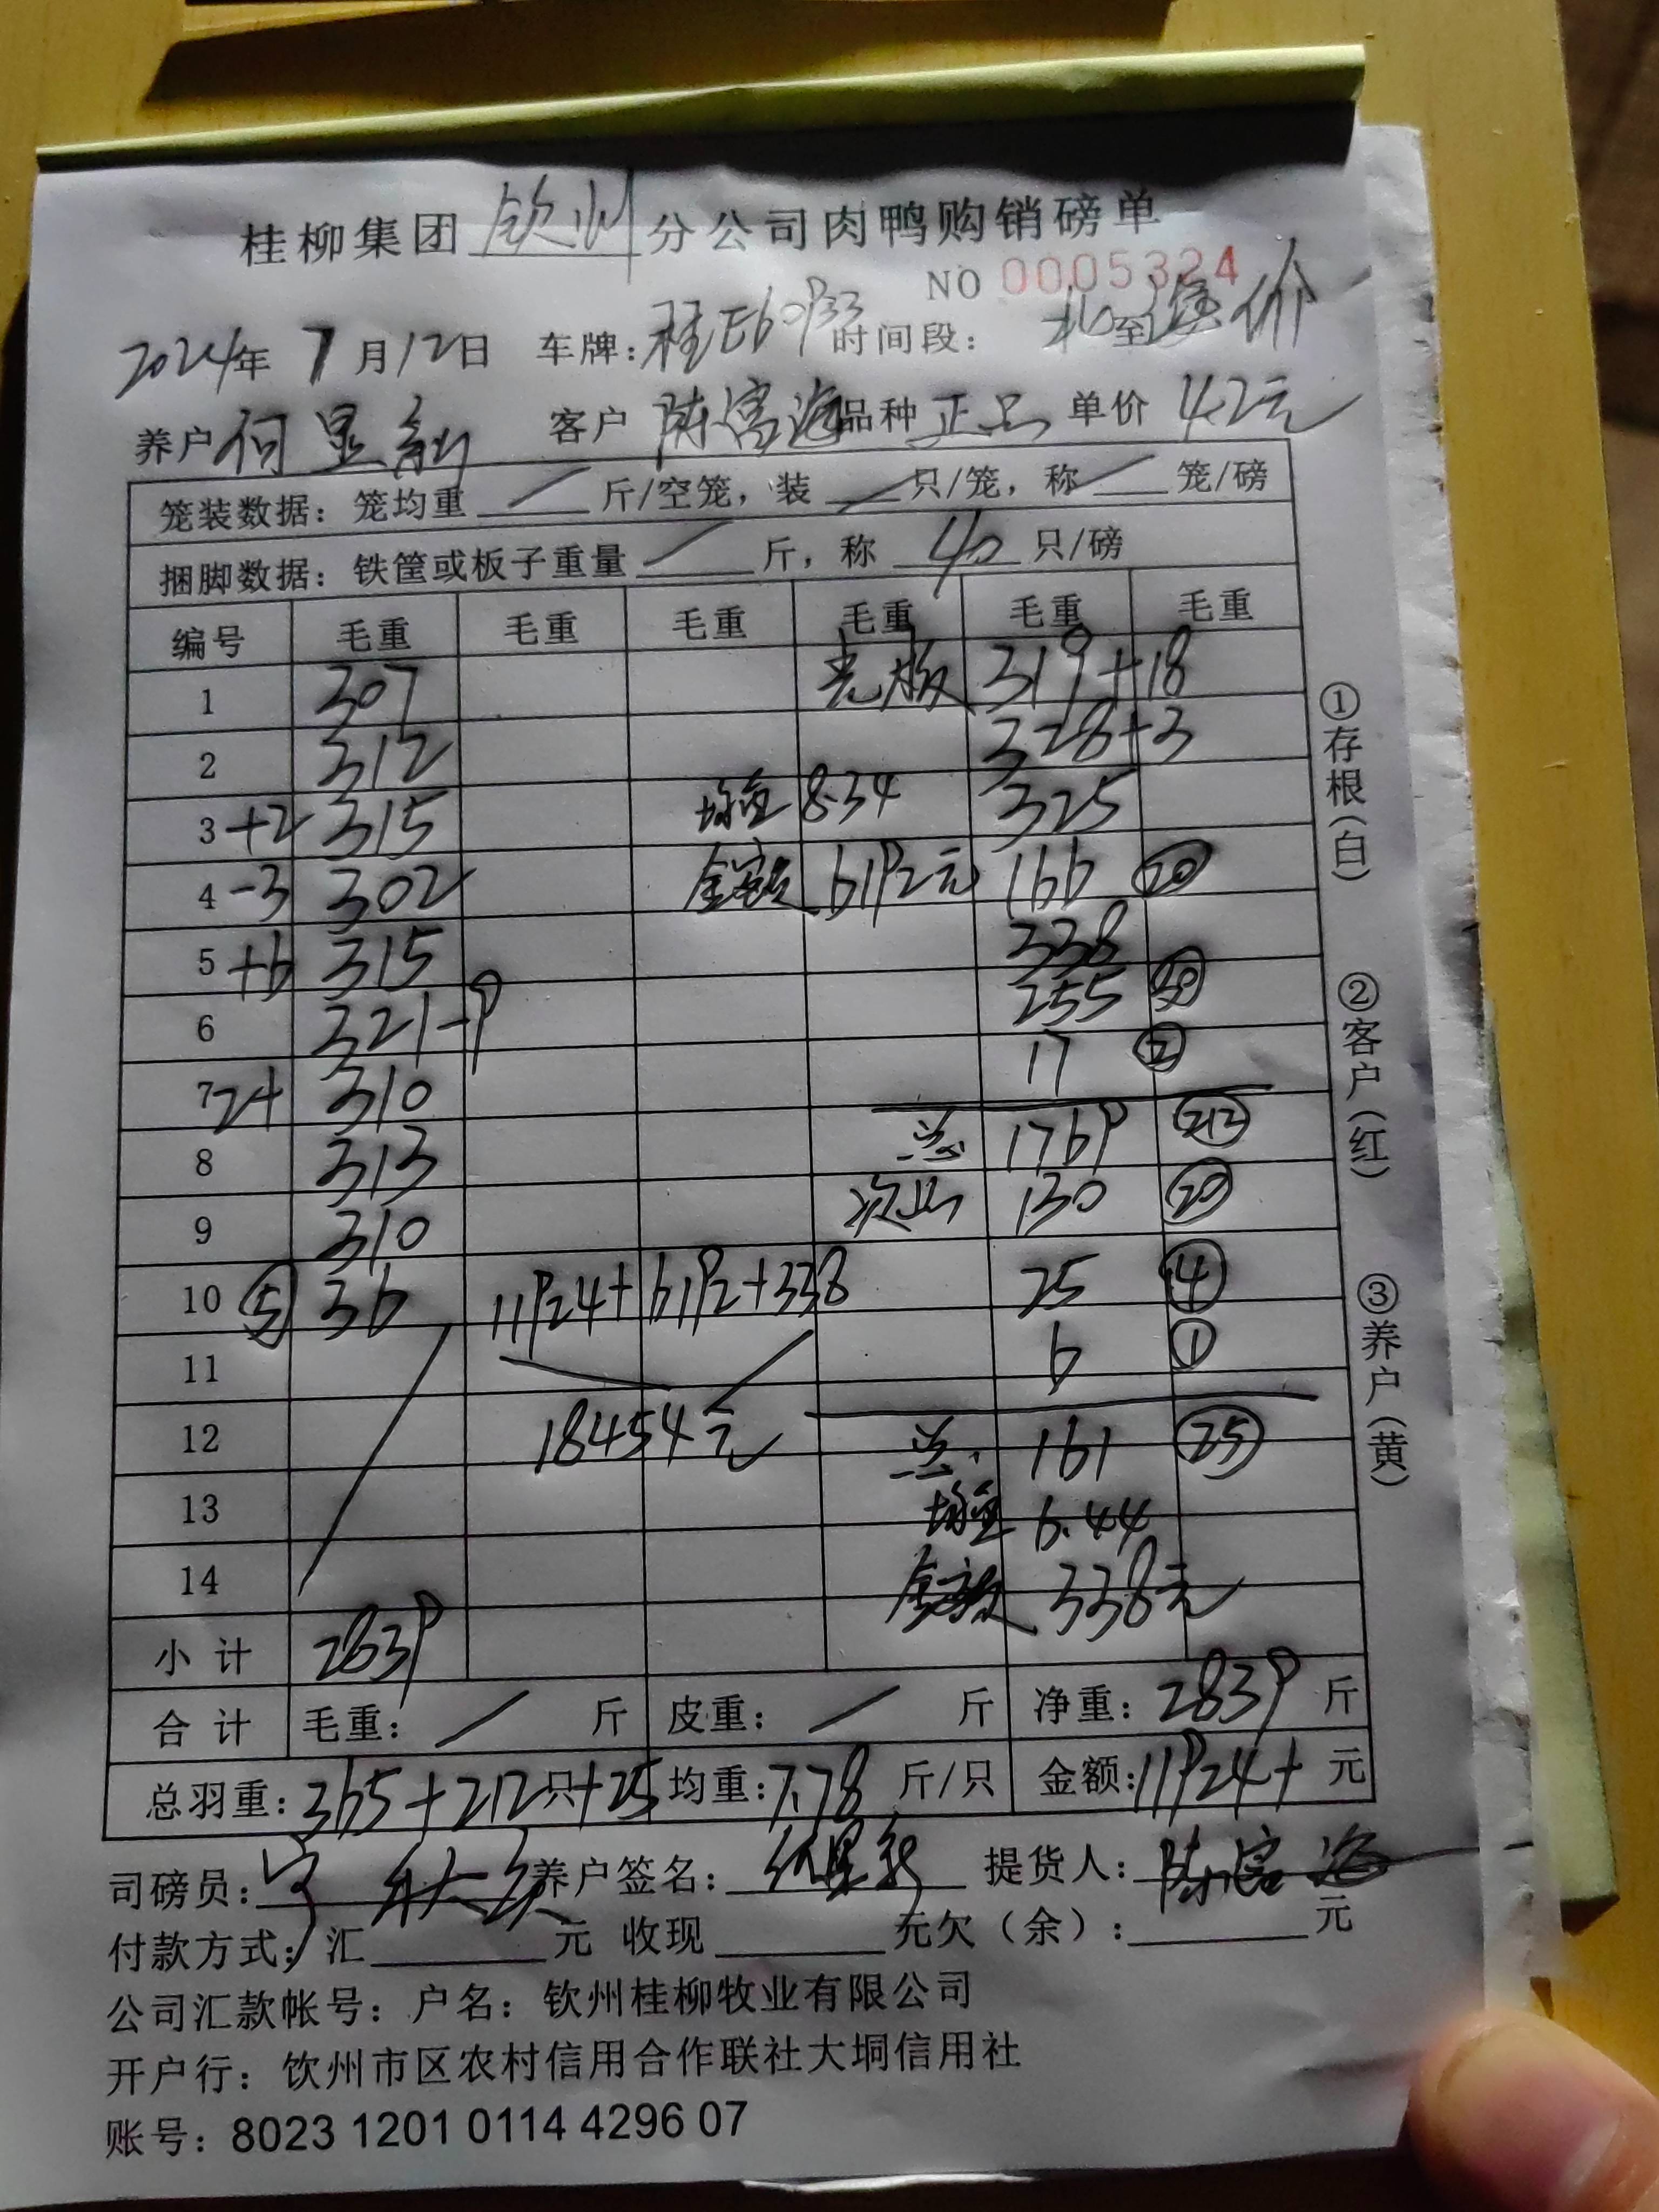 桂柳集团 钦州 分公司肉鸭购销磅单
NO 0005324
2024年 7月12日 车牌:桂E60933 时间段: 北至 价
养户 何显新 客户 陈富海 品种 正品 单价 4.2元
笼装数据: 笼均重 / 斤/空笼, 装 / 只/笼, 称 / 笼/磅
捆脚数据: 铁筐或板子重量 / 斤, 称 40 只/磅
编号 毛重 毛重 毛重 毛重 毛重 毛重
1 307 光板 319+18
2 312 328+3
3 +2 315 均重 8.34 325
4 -3 302 金额 6192元 166 ⑳
5 +6 315 338
6 321-9 255 ㉚
7 2+ 310 17 ②
8 313 总 1769 (212)
9 310 次品 130 ⑳
10 ⑤ 36 11924+6192+338 25 ④
11 6 ①
12 18454元 总. 161 ㉕
13 均重 6.44
14 金额 338元
小计 2839
合计 毛重: / 斤 皮重: / 斤 净重: 2839 斤
总羽重: 365+212只+25 均重: 7.78 斤/只 金额: 11924+ 元
司磅员: 养户签名: 何显新 提货人: 陈富海
付款方式: 汇 元 收现 元欠(余): 元
公司汇款帐号: 户名: 钦州桂柳牧业有限公司
开户行: 钦州市区农村信用合作联社大垌信用社
账号: 8023 1201 0114 4296 07
①存根(白)
②客户(红)
③养户(黄)